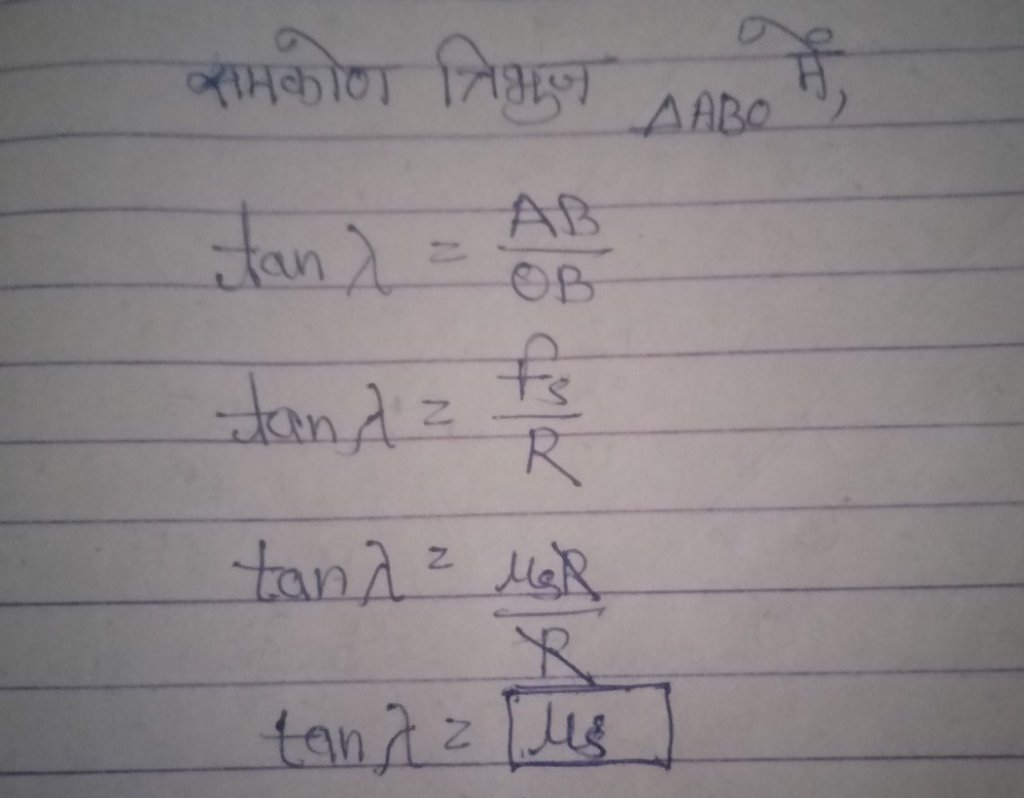 समकोण त्रिभुज ΔABO में,
tan λ = AB/OB
tan λ = fs/R
tan λ = μsR/R
tan λ = μs